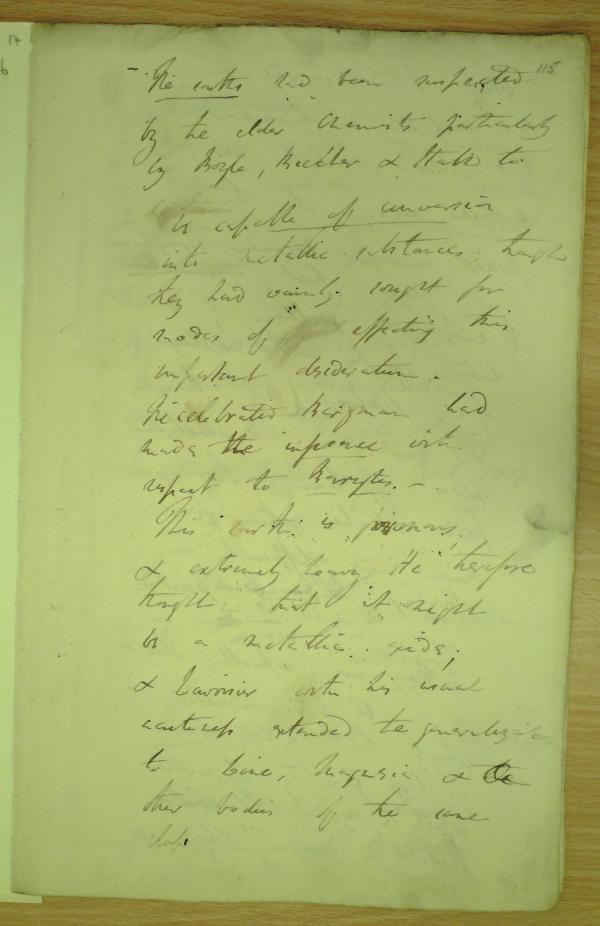 115
- The earths had been suspected
by the elder Chemists particularly
by Boyle, Beccher & Stahl to
be capable of conversion
into metallic substances, though
they had vainly sought for
modes of effecting this
important desideratum.
The celebrated Bergman had
made the inference with
respect to Barytes. -
This earth is poisonous
& extremely heavy He therefore
thought that it might
be a metallic oxide;
& Lavoisier with his usual
acuteness extended the generalization
to Lime, Magnesia & the
other bodies of the same
class